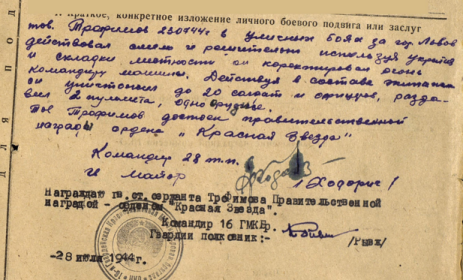 I. Краткое, конкретное изложение личного боевого подвига или заслуг
тов. Трофимов 230744г. в уличных боях за гор. Львов
действовал смело и решительно используя укрытия
и складки местности он корректировал огонь
командиру машины. Действуя в составе экипажа
он уничтожил до 20 солдат и офицеров, разда-
вил 2 пулемета, одно орудие.
Тов Трофимов достоен правительственной
награды ордена "Красная Звезда"
Командир 28 т.п.
майор /Ходорис/
Награждать гв. ст. сержанта Трофимова Правительственной
наградой - орденом "Красная Звезда".
Командир 16 ГМКБр.
Гвардии полковник:- /Рывж/
-28 июля 1944г-